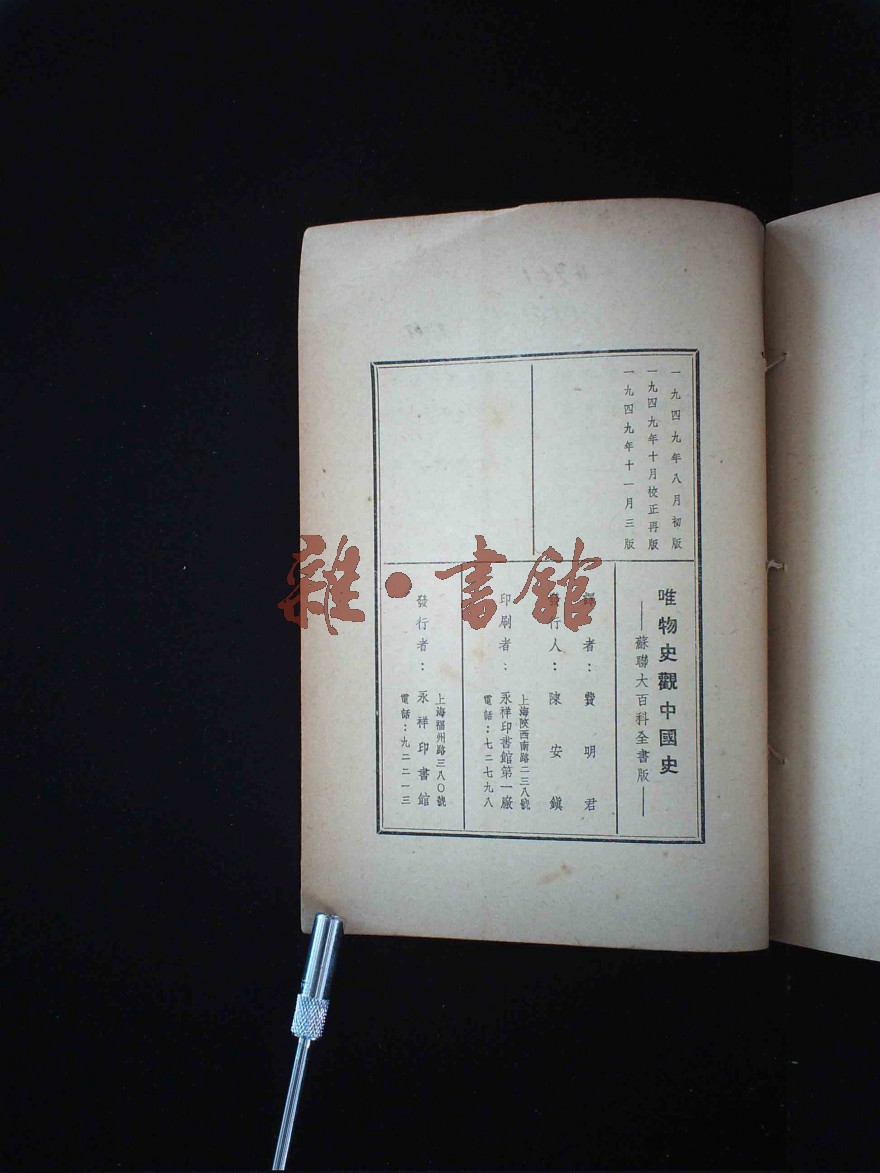 一九四九年八月初版
一九四九年十月校正再版
一九四九年十一月三版
唯物史觀中國史
——蘇聯大百科全書版——
譯者：費明君
發行人：陳安鎭
印刷者：
上海陝西南路二三八號
永祥印書館第一廠
電話：七二七九八
發行者：
上海福州路三八〇號
永祥印書館
電話：九二二一三
雜·書館